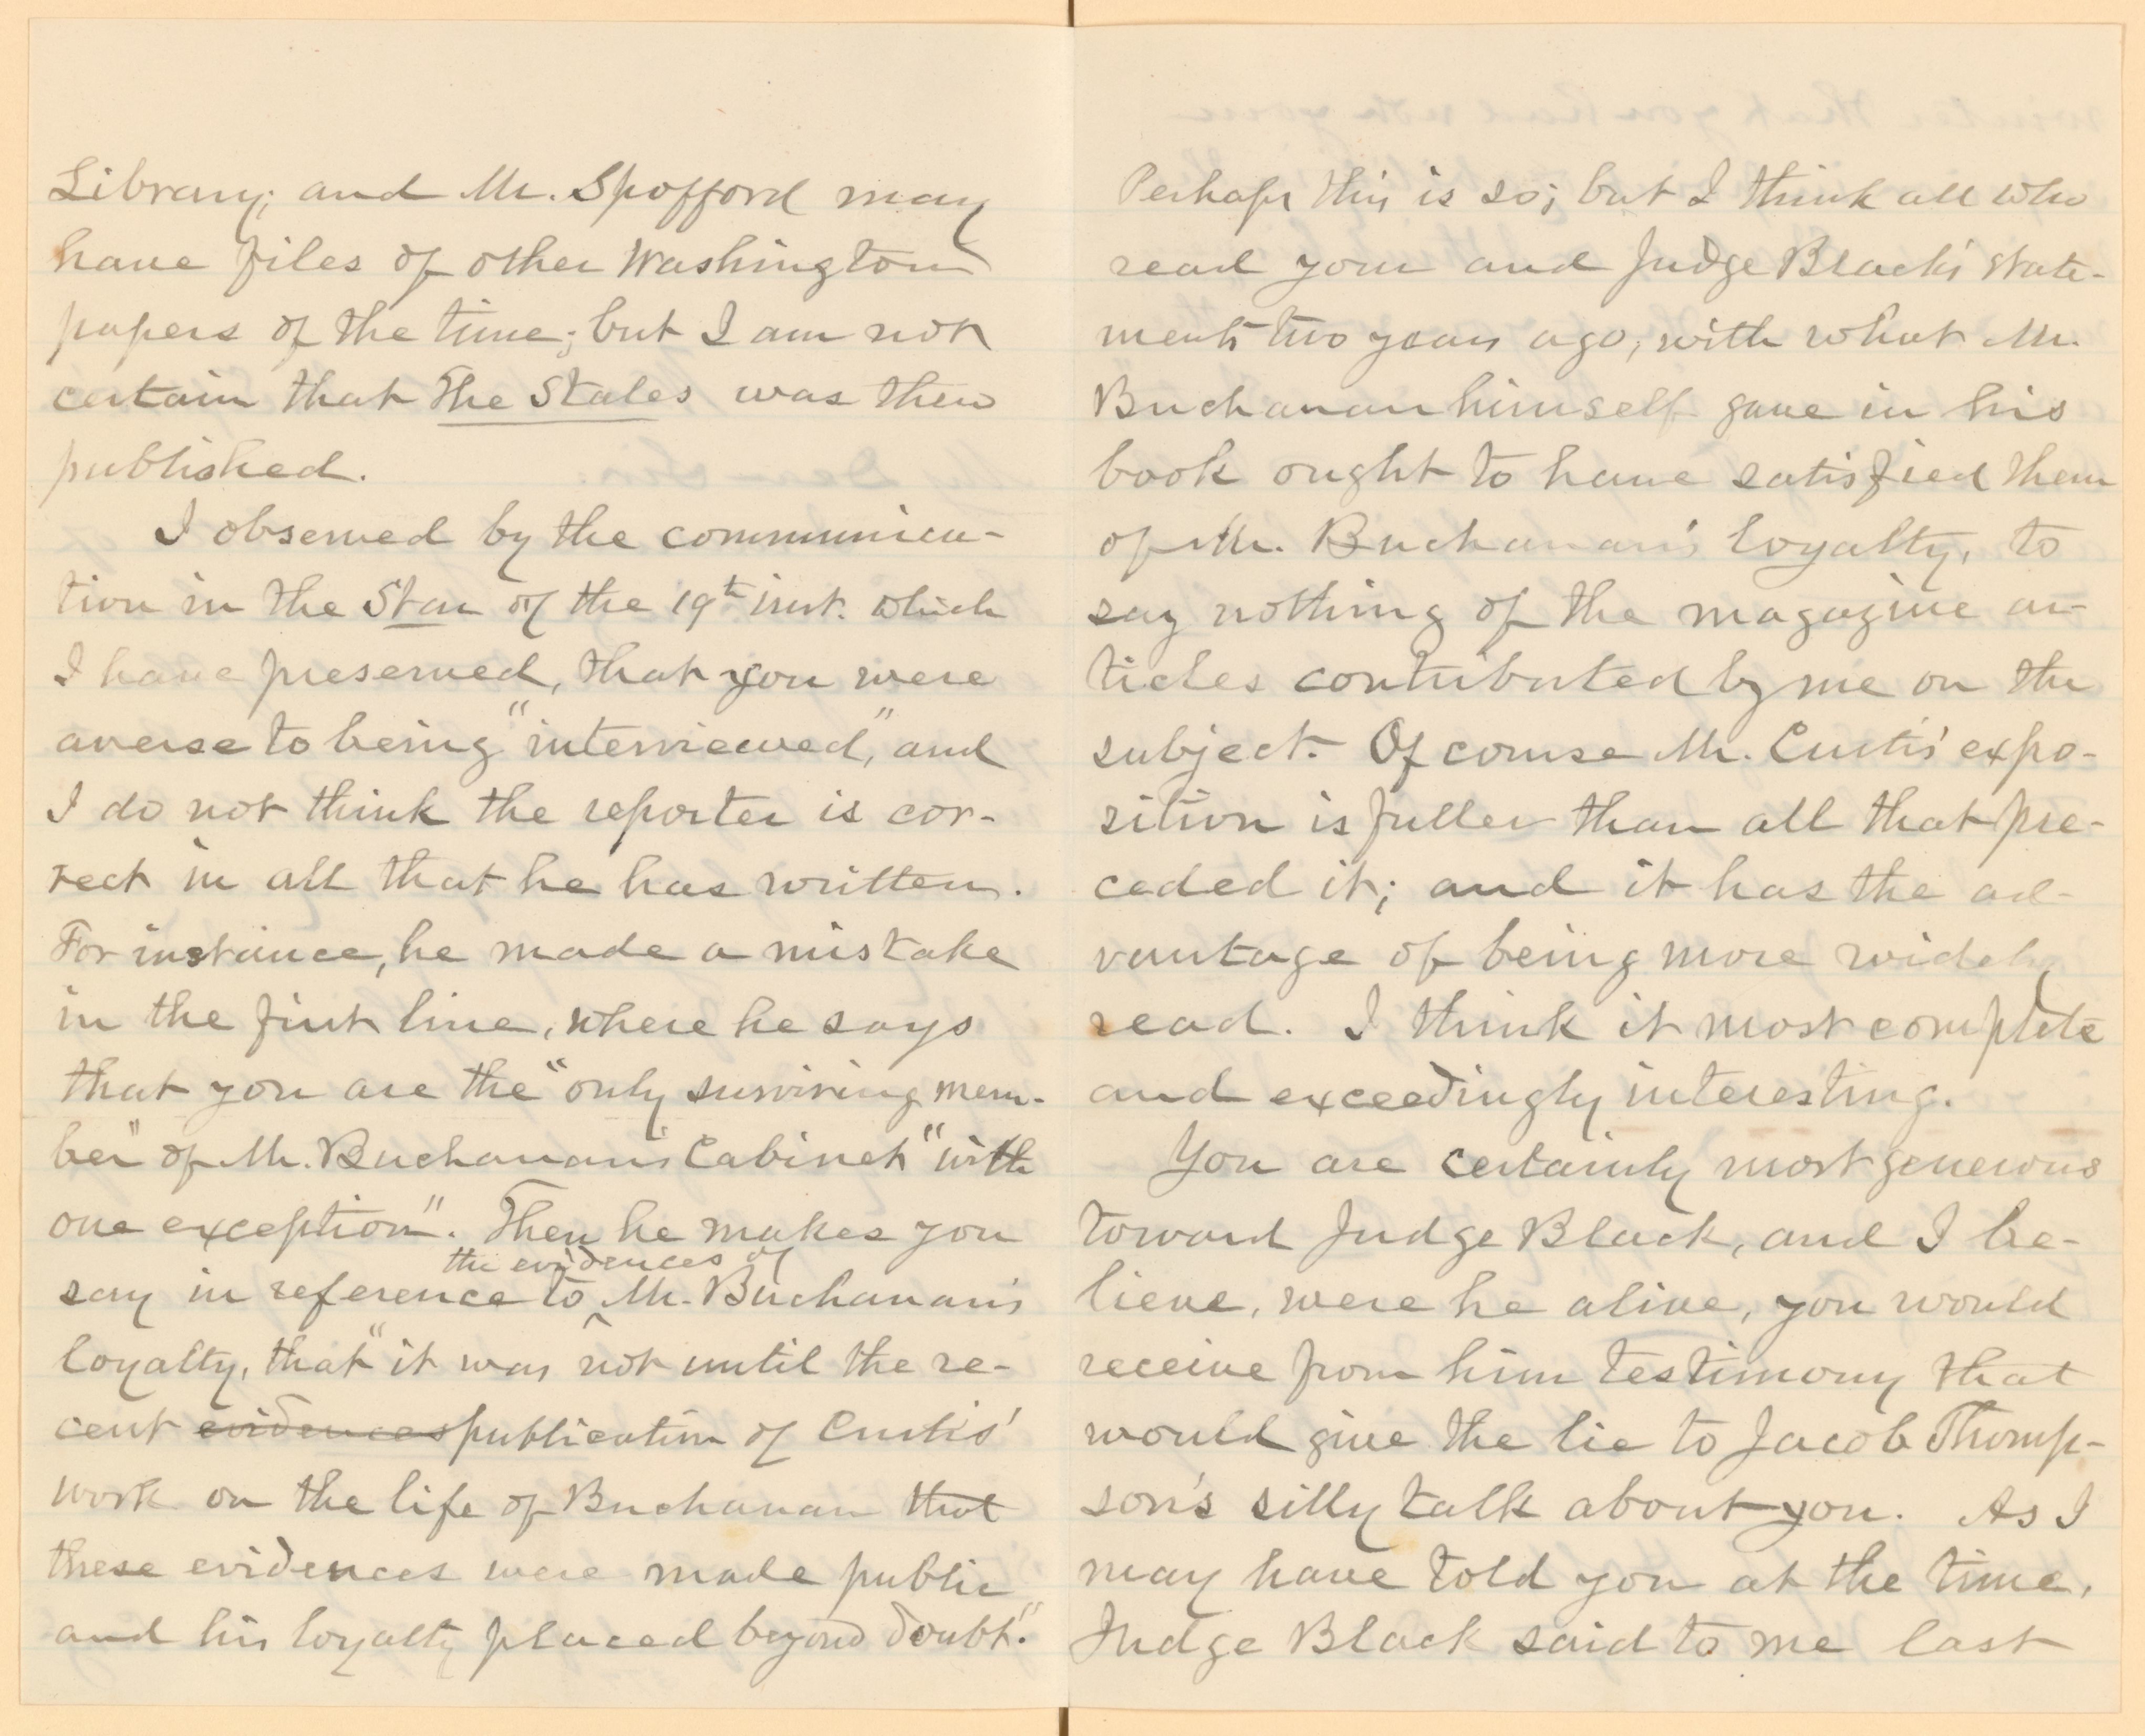 Library; and Mr. Spofford may
have files of other Washington
papers of the time; but I am not
certain that The States was then
published.
I observed by the communica-
tion in the Star of the 19th inst. which
I have preserved, that you were
averse to being "interviewed," and
I do not think the reporter is cor-
rect in all that he has written.
For instance, he made a mistake
in the first line, where he says
that you are the "only surviving mem-
ber" of Mr. Buchanan's Cabinet "with
one exception". Then he makes you
say in reference to the evidences of Mr. Buchanan's
loyalty, that "it was not until the re-
cent evidences publication of Curtis'
work on the life of Buchanan that
these evidences were made public
and his loyalty placed beyond doubt."
Perhaps this is so; but I think all who
read your and Judge Black's state-
ments two years ago, with what Mr.
Buchanan himself gave in his
book ought to have satisfied them
of Mr. Buchanan's loyalty, to
say nothing of the magazine ar-
ticles contributed by me on the
subject. Of course Mr. Curtis' expo-
sition is fuller than all that pre-
ceded it; and it has the ad-
vantage of being more widely
read. I think it most complete
and exceedingly interesting.
You are certainly most generous
toward Judge Black, and I be-
lieve, were he alive, you would
receive from him testimony that
would give the lie to Jacob Thomp-
son's silly talk about you. As I
may have told you at the time,
Judge Black said to me last